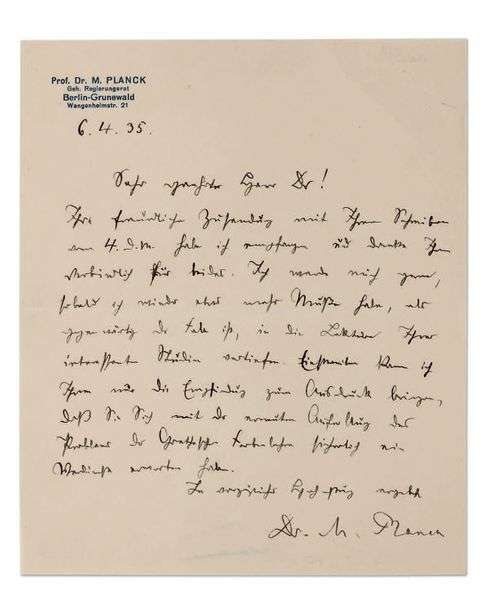 Prof. Dr. M. PLANCK
Geh. Regierungsrat
Berlin-Grunewald
Wangenheimstr. 21
6. 4. 35.
Sehr geehrter Herr Dr!
Ihre freundliche Zusendung mit Ihrem Schreiben
vom 4. d. M. habe ich empfangen und danke Ihnen
verbindlich für beides. Ich werde mich gern,
sobald ich wieder etwas mehr Muße habe, als
gegenwärtig der Fall ist, in die Lektüre Ihrer
interessanten Studien vertiefen. Einstweilen kann ich
Ihnen nur die Empfindung zum Ausdruck bringen,
daß Sie Sich mit der erneuten Aufrollung des
Problems der Goetheschen Farbenlehre sicherlich ein
Verdienst erworben haben.
In vorzüglicher Hochachtung ergebenst
Dr. M. Planck